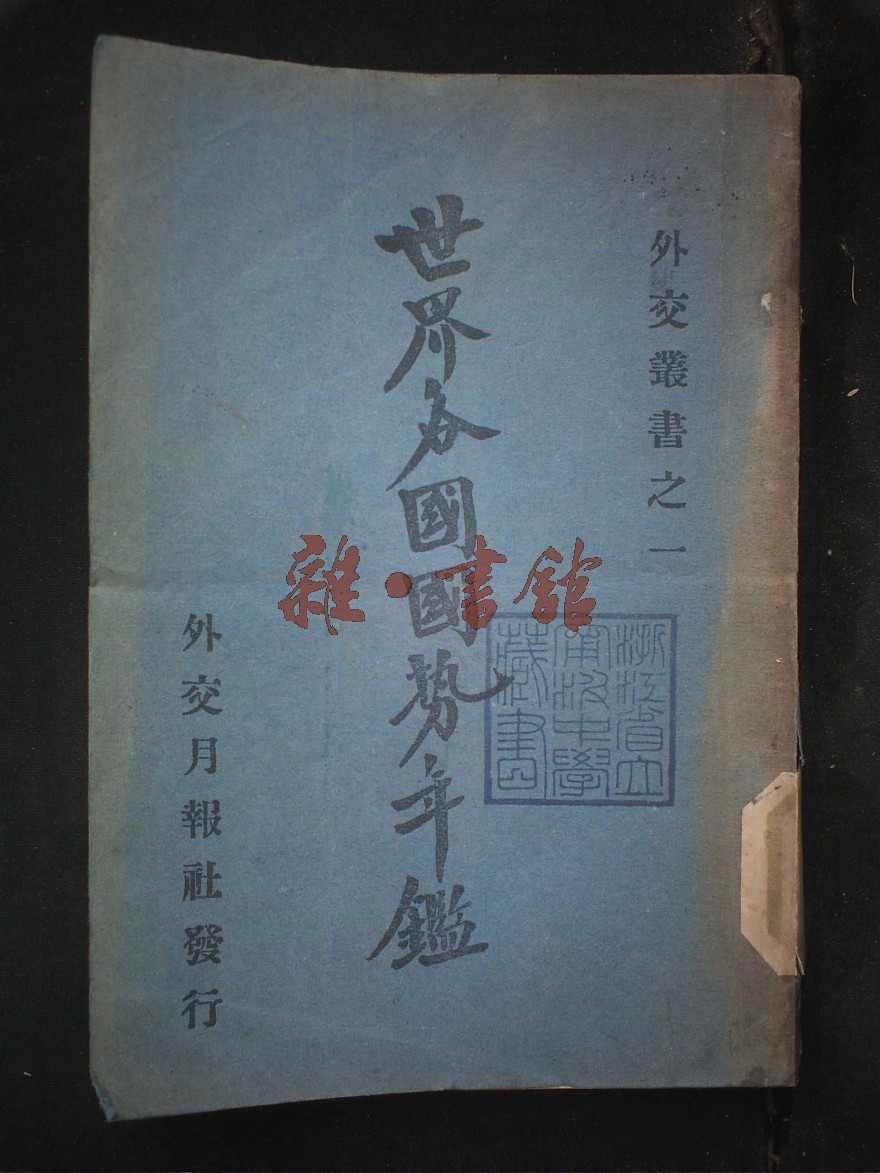 外交叢書之一
世界各國國勢年鑑
外交月報社發行
雜·書館
浙江省立
甬江中學
藏書